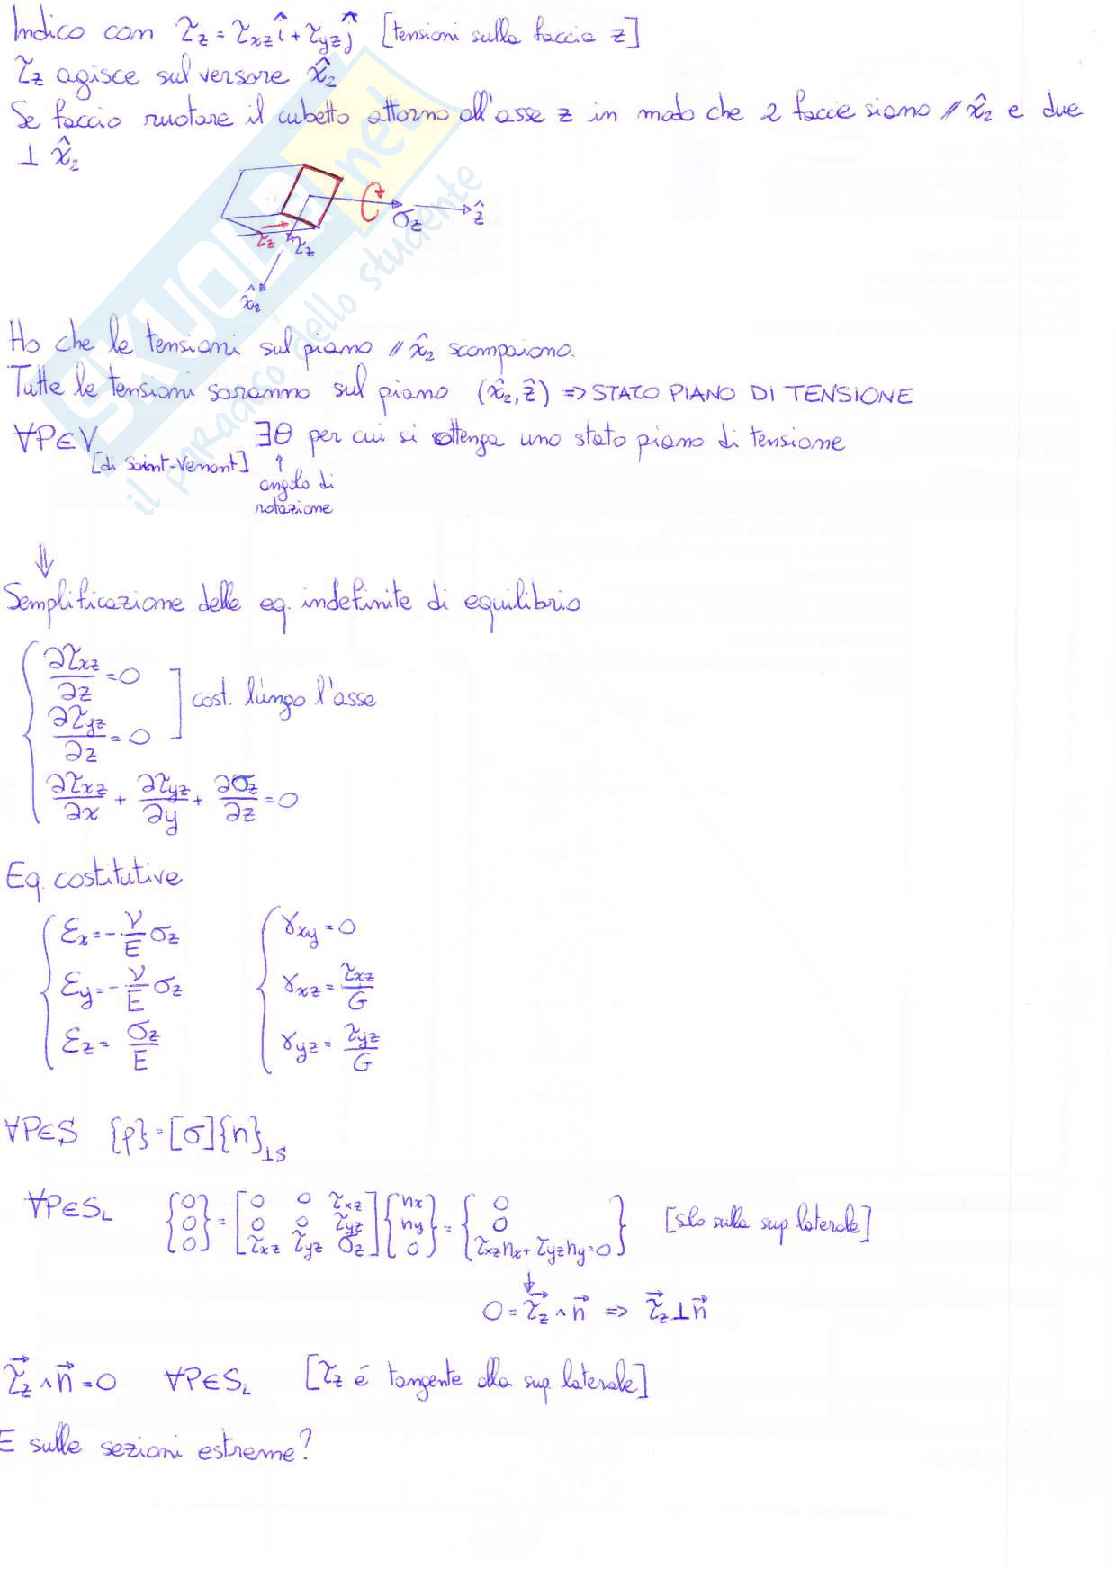 Indico con τz = τxz î + τyz ĵ [tensioni sulla faccia z]
τz agisce sul versore x̂2
Se faccio ruotare il cubetto attorno all'asse z in modo che 2 facce siano // x̂2 e due
⊥ x̂2
τz τz σz ẑ
x̂2
Ho che le tensioni sul piano // x̂2 scompaiono.
Tutte le tensioni saranno sul piano (x̂2, ẑ) => STATO PIANO DI TENSIONE
∀P∈V [di Saint-Venant] ∃θ per cui si ottenga uno stato piano di tensione
↑
angolo di
rotazione
⇓
Semplificazione delle eq. indefinite di equilibrio
∂τxz/∂z = 0
∂τyz/∂z = 0 ] cost. lungo l'asse
∂τxz/∂x + ∂τyz/∂y + ∂σz/∂z = 0
Eq. costitutive
εx = -ν/E σz γxy = 0
εy = -ν/E σz γxz = τxz/G
εz = σz/E γyz = τyz/G
∀P∈S {p} = [σ]{n}⊥S
∀P∈SL {0 0 0} = [0 0 τxz; 0 0 τyz; τxz τyz σz] {nx ny 0} = {0; 0; τxz nx + τyz ny = 0} [solo sulla sup laterale]
↓
0 = τ⃗z ∧ n⃗ => τ⃗z ⊥ n⃗
τ⃗z ∧ n⃗ = 0 ∀P∈SL [τz é tangente alla sup laterale]
E sulle sezioni estreme?
SKUOLA.net
il paradiso dello studente